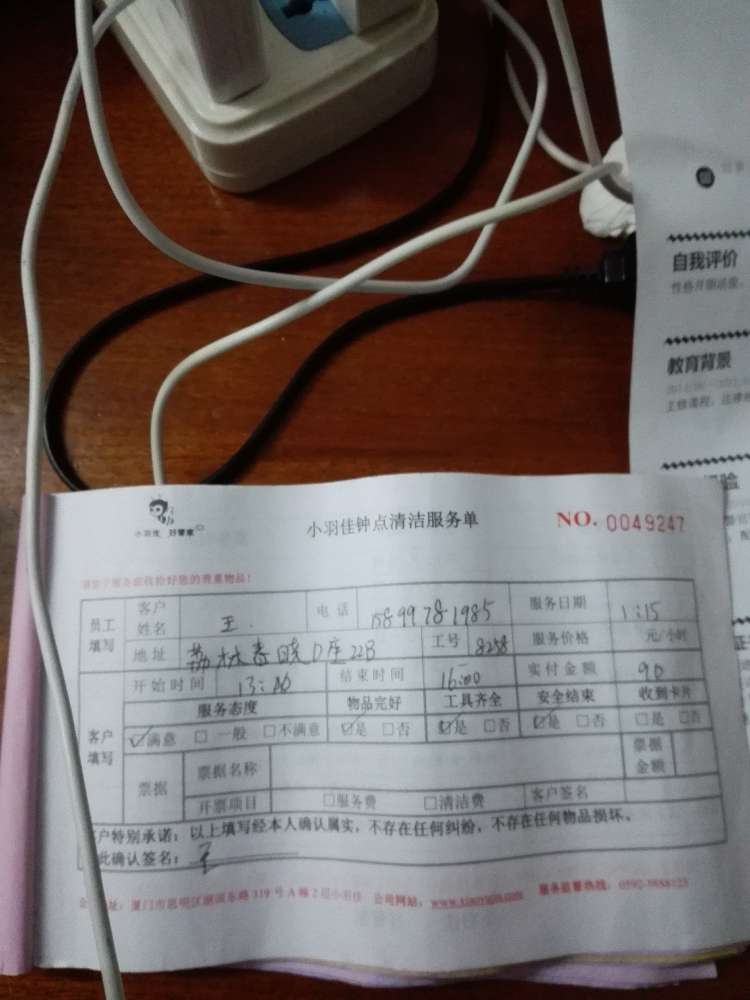 自我评价
教育背景
小羽佳 好管家
小羽佳钟点清洁服务单
NO. 0049247
员工填写 客户姓名 王 电话 15899781985 服务日期 1:15
地址 荔林春晓D座22B 工号 8258 服务价格 元/小时
客户填写 开始时间 13:00 结束时间 16:00 实付金额 90
服务态度 物品完好 工具齐全 安全结束 收到卡片
☑满意 □一般 □不满意 ☑是 □否 ☑是 □否 ☑是 □否 □是 □否
票据 票据名称 票据金额
开票项目 □服务费 □清洁费 客户签名
户特别承诺：以上填写经本人确认属实，不存在任何纠纷，不存在任何物品损坏。
此确认签名：王
公司网站：
服务监督热线：